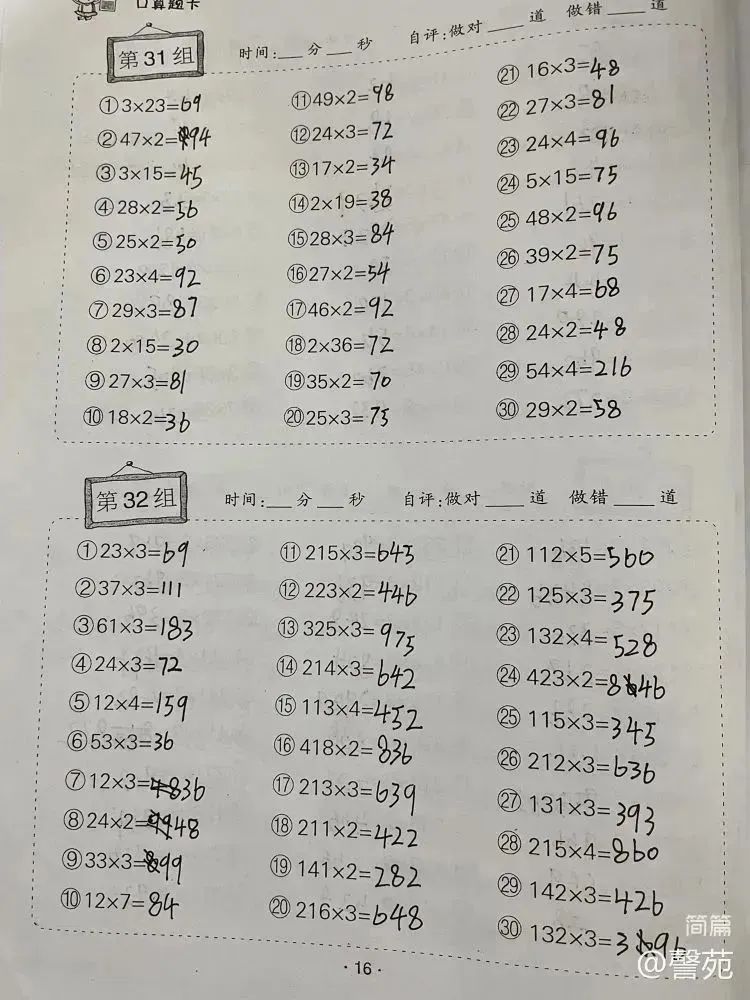 口算题卡
第31组
时间:__分__秒 自评:做对____道 做错____道
①3×23=69
②47×2=94
③3×15=45
④28×2=56
⑤25×2=50
⑥23×4=92
⑦29×3=87
⑧2×15=30
⑨27×3=81
⑩18×2=36
⑪49×2=98
⑫24×3=72
⑬17×2=34
⑭2×19=38
⑮28×3=84
⑯27×2=54
⑰46×2=92
⑱2×36=72
⑲35×2=70
⑳25×3=75
㉑16×3=48
㉒27×3=81
㉓24×4=96
㉔5×15=75
㉕48×2=96
㉖39×2=75
㉗17×4=68
㉘24×2=48
㉙54×4=216
㉚29×2=58
第32组
时间:__分__秒 自评:做对____道 做错____道
①23×3=69
②37×3=111
③61×3=183
④24×3=72
⑤12×4=159
⑥53×3=36
⑦12×3=36
⑧24×2=48
⑨33×3=99
⑩12×7=84
⑪215×3=645
⑫223×2=446
⑬325×3=975
⑭214×3=642
⑮113×4=452
⑯418×2=836
⑰213×3=639
⑱211×2=422
⑲141×2=282
⑳216×3=648
㉑112×5=560
㉒125×3=375
㉓132×4=528
㉔423×2=846
㉕115×3=345
㉖212×3=636
㉗131×3=393
㉘215×4=860
㉙142×3=426
㉚132×3=396
·16·
简篇
@謦苑